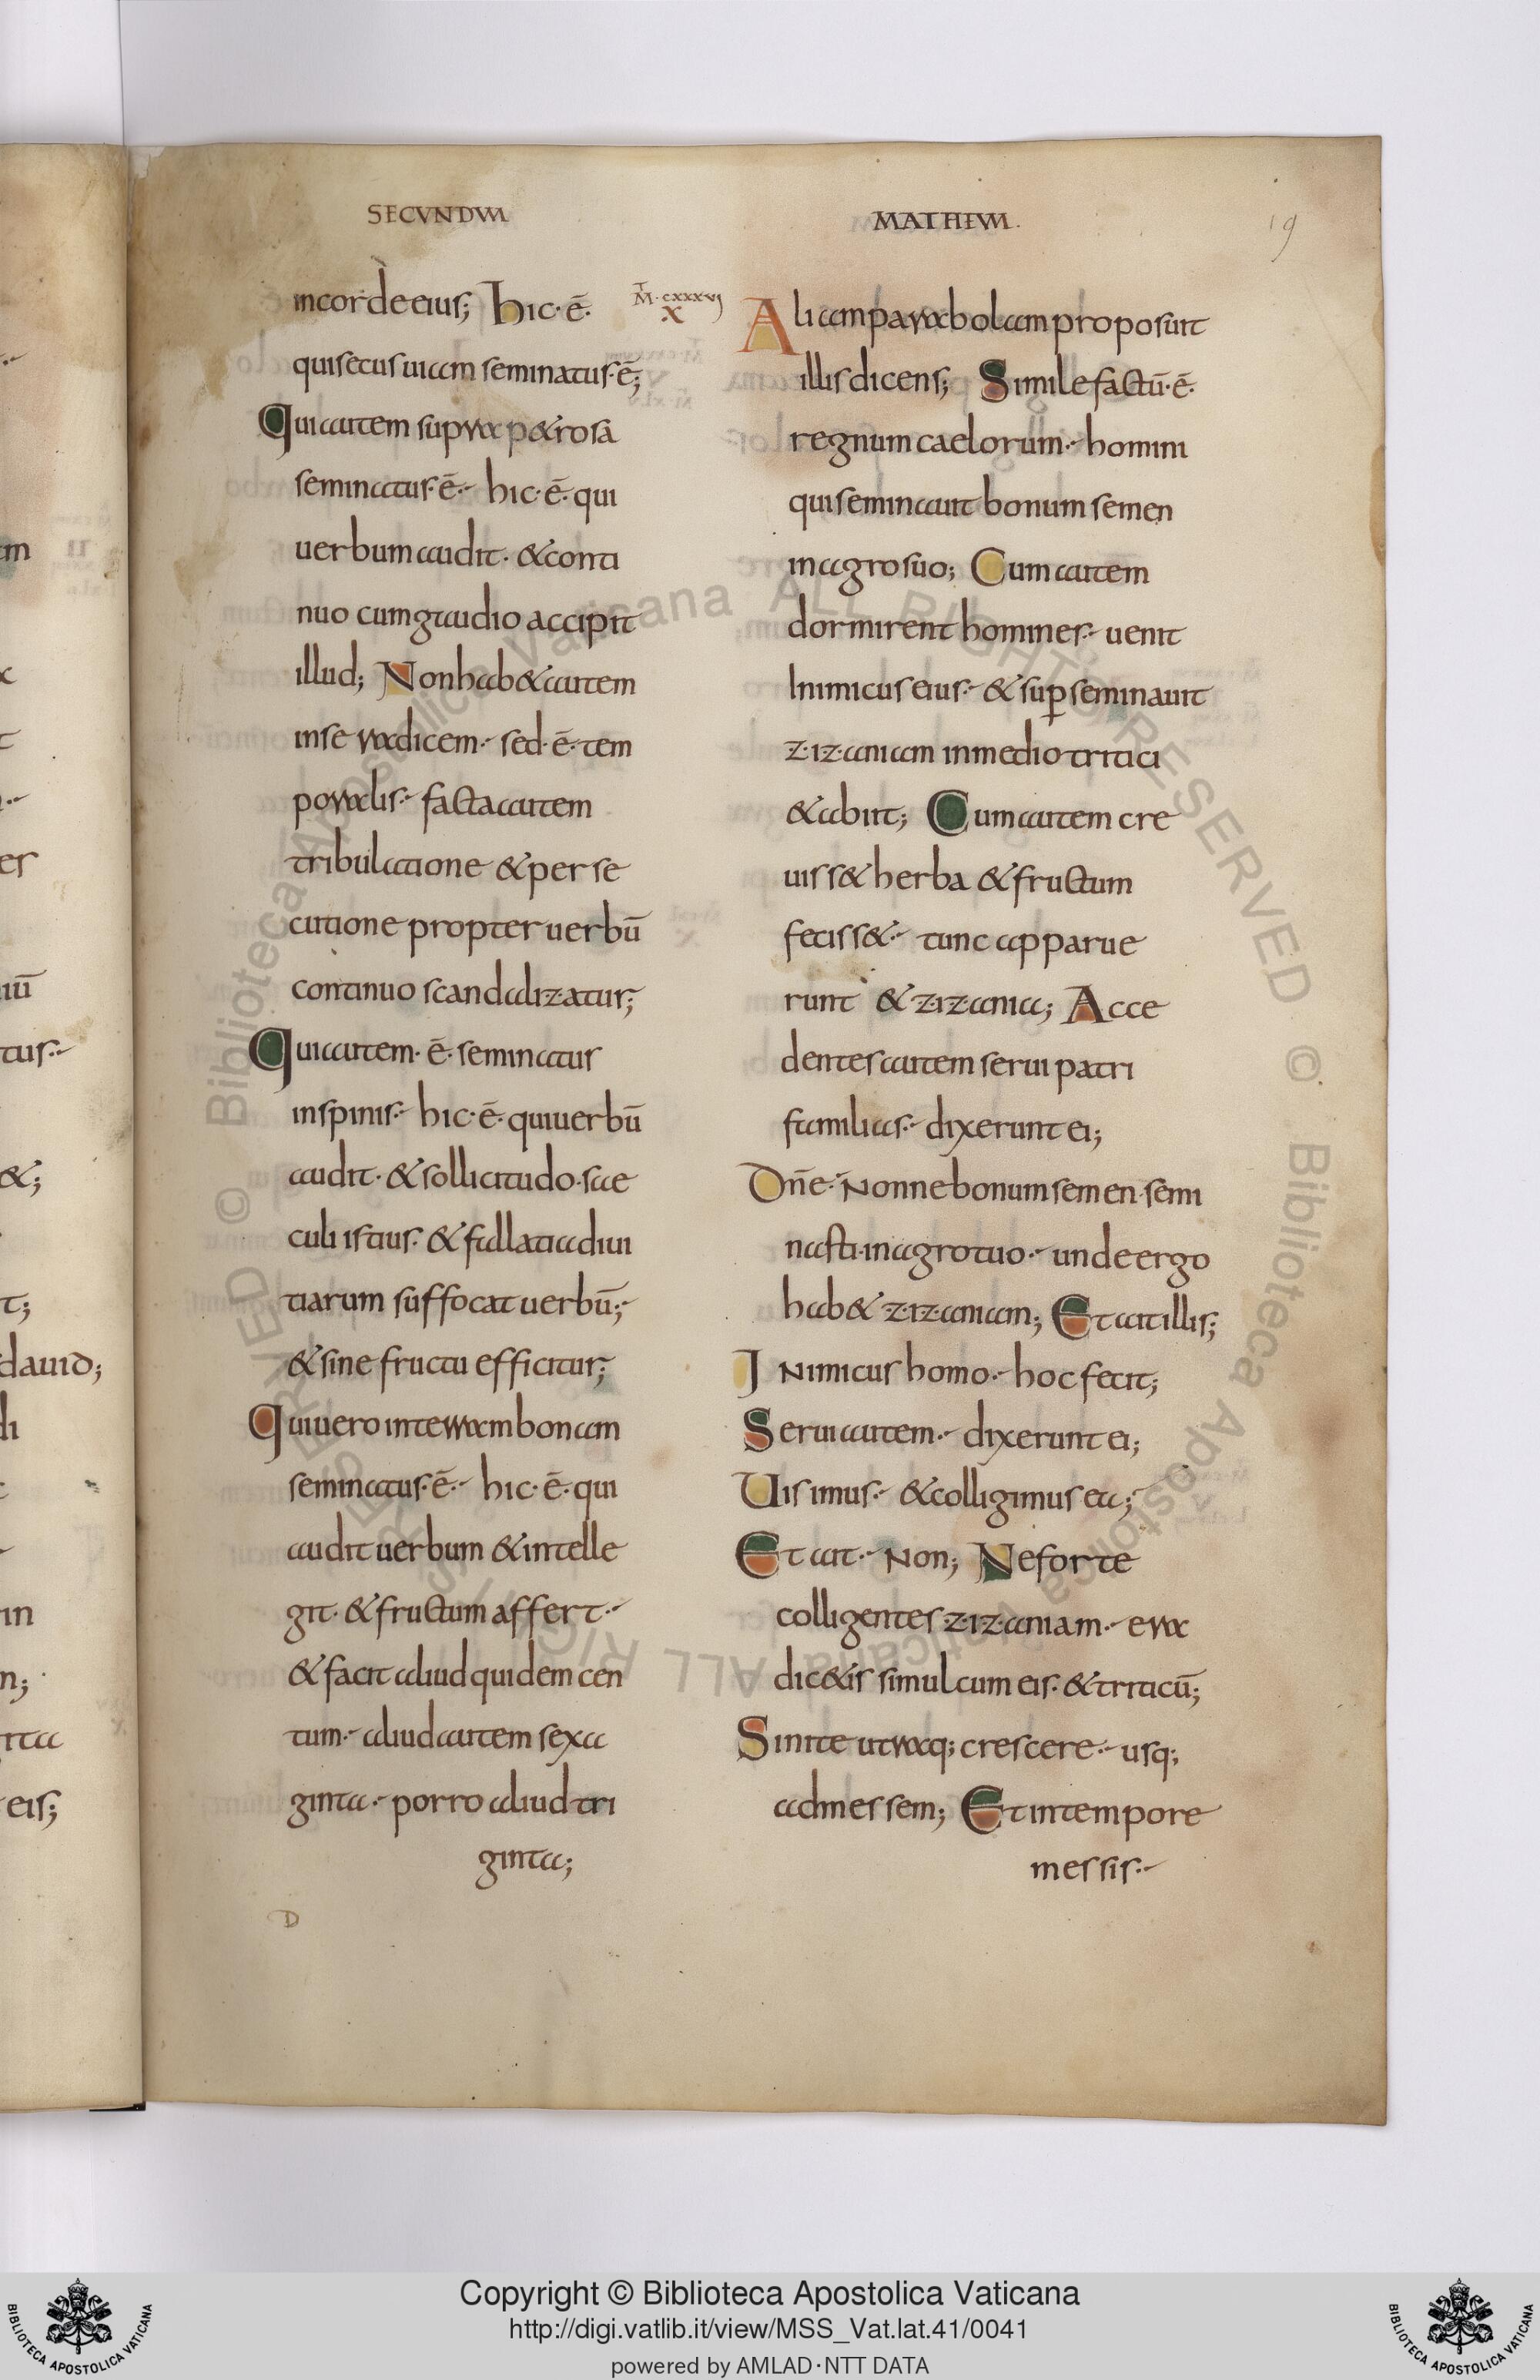 SECUNDUM
MATHEUM.
19
in corde eius; hic·ē·
qui secus uiam seminatus·ē;
Qui autem supra p&rosā
seminatus·ē·- hic·ē· qui
uerbum audit· & conti
nuo cum gaudio accipit
illud; Non hab& autem
in se radicem·- sed·ē· tem
poralis·- facta autem
tribulatione & per se
cutione propter uerbū
continuo scandalizatur;
Qui autem·ē· seminatus
in spinis·- hic·ē· qui uerbū
audit· & sollicitudo sae
culi istius· & fallatia diui
tiarum suffocat uerbū;
& sine fructu efficitur;
Qui uero in terram bonam
seminatus·ē·- hic·ē· qui
audit uerbum & intelle
git· & fructum affert·-
& facit aliud quidem cen
tum·- aliud autem sexa
ginta·- porro aliud tri
ginta;
D
M·cxxxvi
X
Aliam parabolam proposuit
illis dicens; Simile factū·ē·
regnum caelorum·- homini
qui seminauit bonum semen
in agro suo; Cum autem
dormirent homines·- uenit
Inimicus eius·- & sup̄seminauit
zizaniam in medio tritici
& abiit; Cum autem cre
uiss& herba & fructum
feciss&·- tunc apparue
runt & zizania; Acce
dentes autem serui patri
familias·- dixerunt ei;
Dn̄e·- Nonne bonum semen semi
nasti in agro tuo·- unde ergo
hab& zizaniam; Et ait illis;
Inimicus homo·- hoc fecit;
Serui autem·- dixerunt ei;
Uis imus·- & colligimus ea;
Et ait·- Non; Ne forte
colligentes zizaniam·- era
dic&is simul cum eis· & triticū;
Sinite utraq; crescere·- usq;
ad messem; Et in tempore
messis·-
Copyright © Biblioteca Apostolica Vaticana
http://digi.vatlib.it/view/MSS_Vat.lat.41/0041
powered by AMLAD·NTT DATA